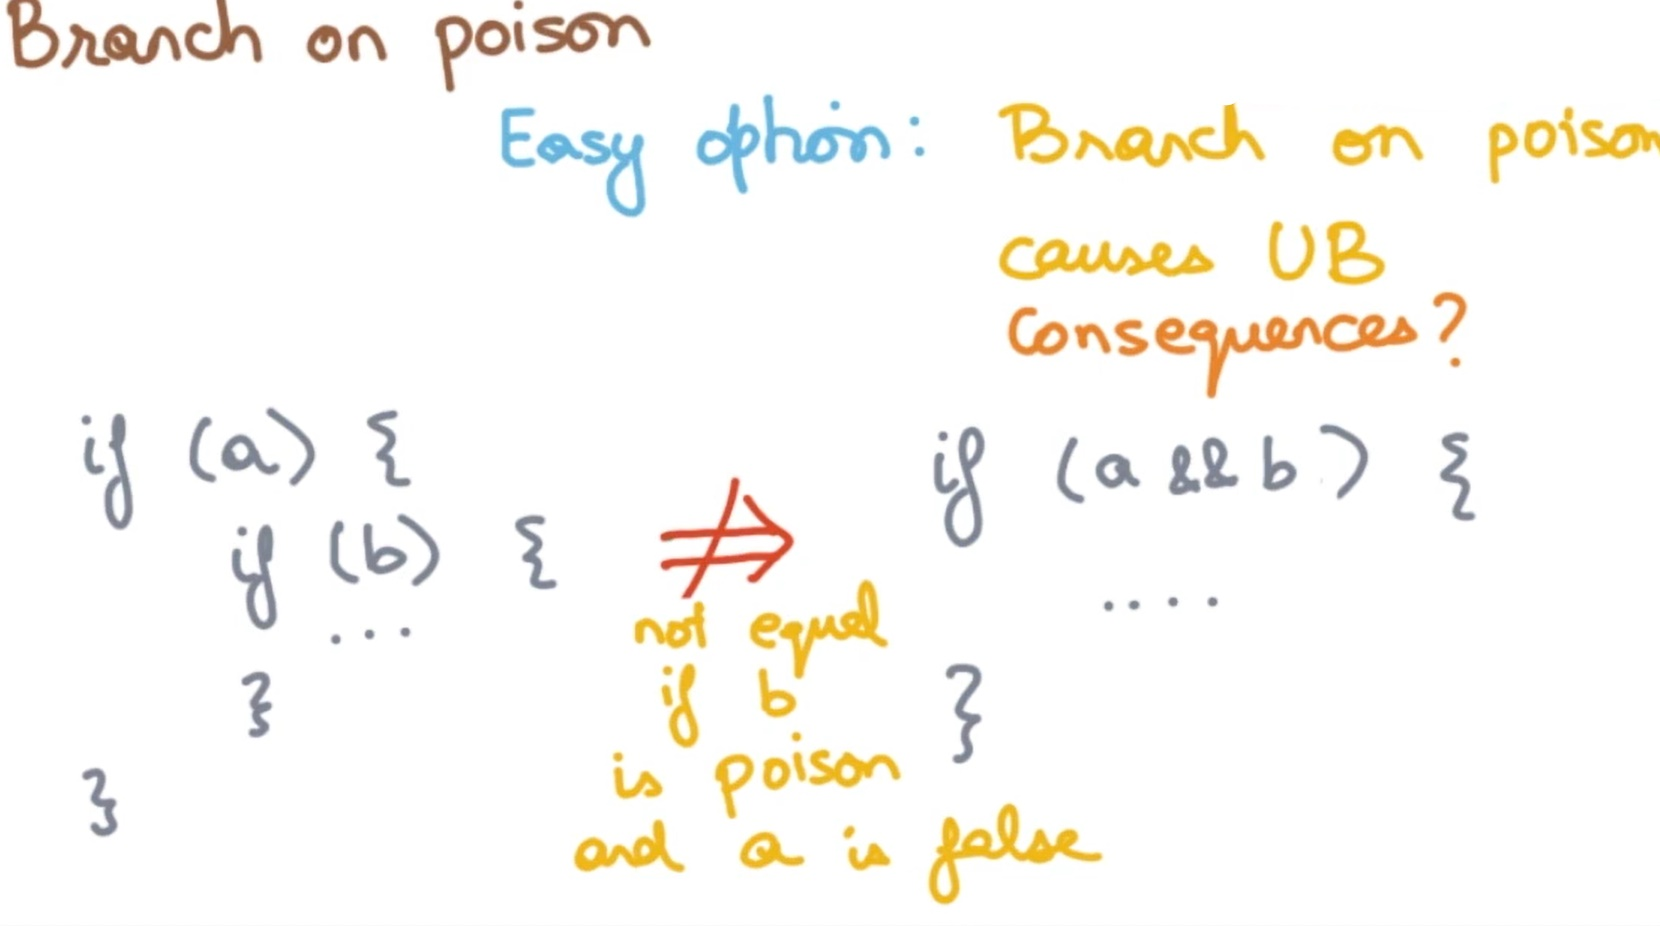 Branch on poison
Easy option: Branch on poison
causes UB
Consequences?
if (a) {
if (b) {
...
}
}
not equal
if b
is poison
and a is false
if (a && b) {
....
}